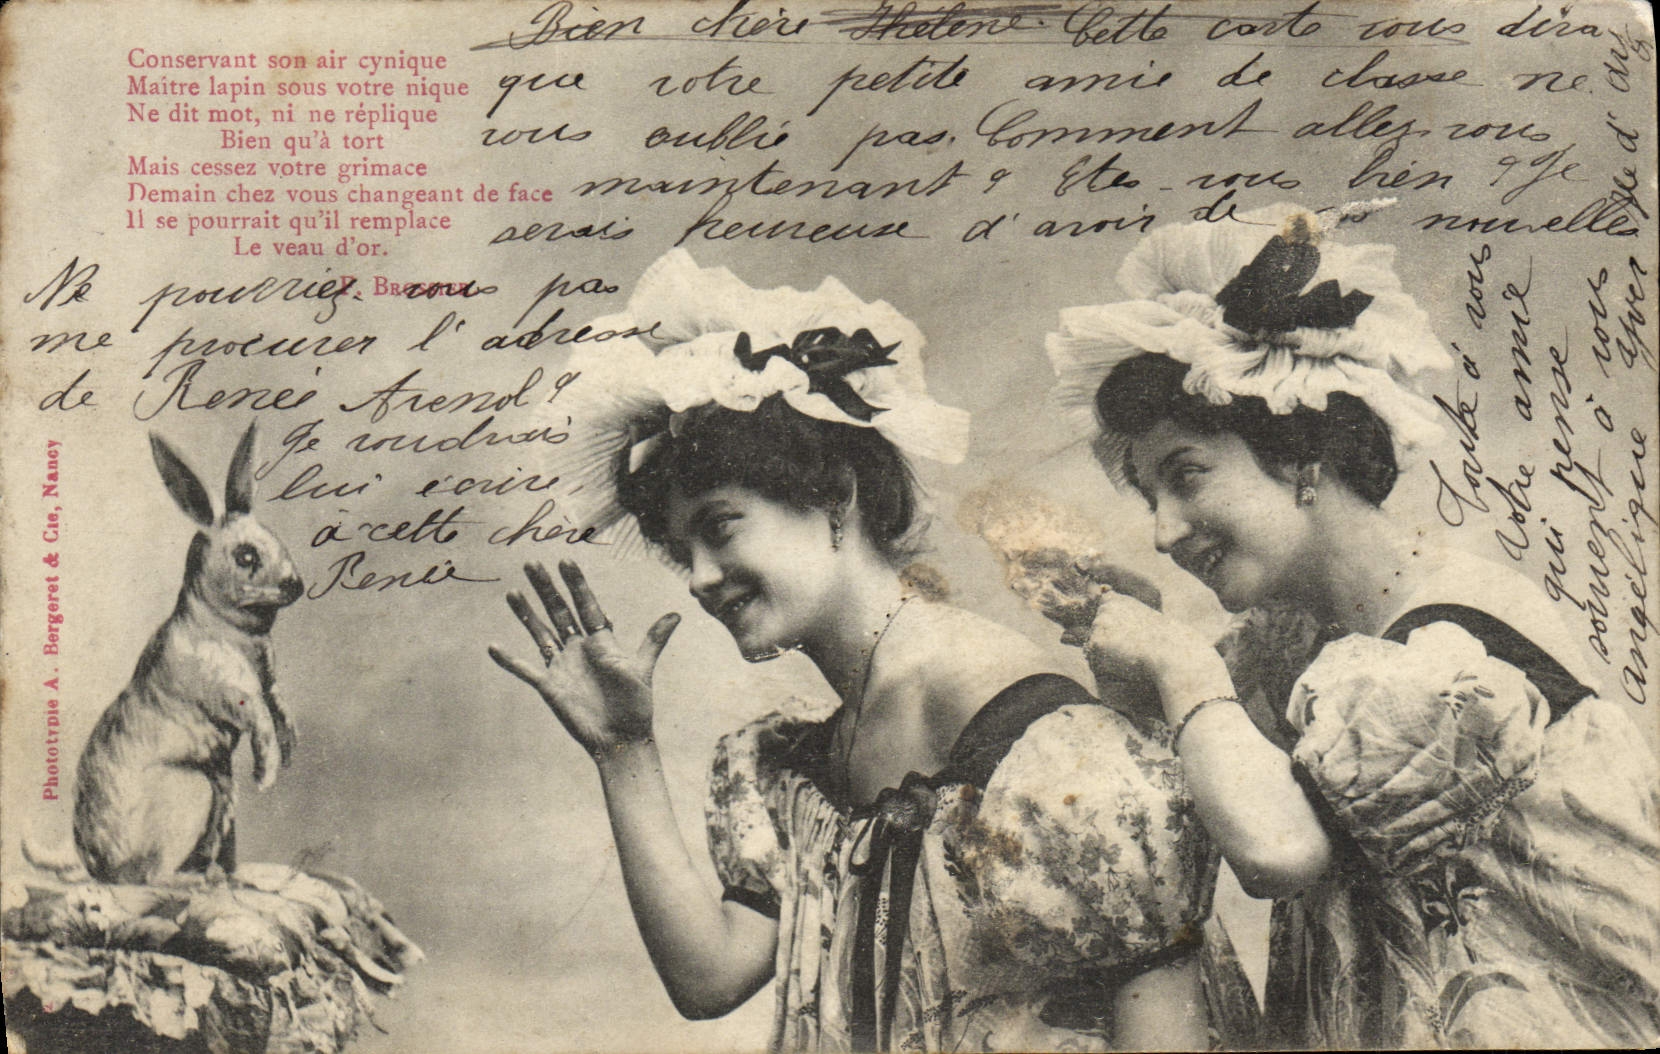 Conservant son air cynique
Maître lapin sous votre nique
Ne dit mot, ni ne réplique
Bien qu'à tort
Mais cessez votre grimace
Demain chez vous changeant de face
Il se pourrait qu'il remplace
Le veau d'or.
Bien chère Hélène. Cette carte vous dira
que votre petite amie de classe ne
vous oublie pas. Comment allez-vous
maintenant ? Etes-vous bien ? Je
serais heureuse d'avoir de nouvelles
Ne pourriez-vous pas
me procurer l'adresse
de Renée Arenol ?
Je voudrais
lui écrire,
à cette chère
Renée
Toute à vous
Votre amie
qui pense
souvent à vous
Angélique
Phototypie A. Bergeret & Cie, Nancy